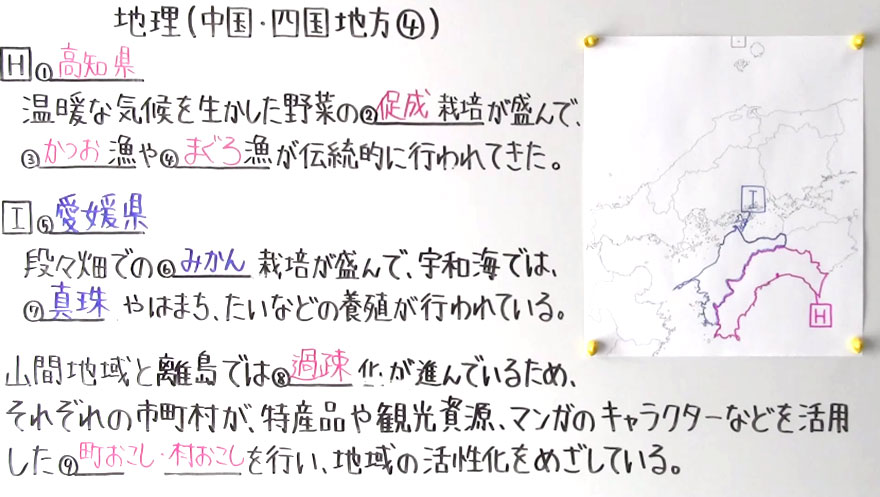 地理(中国・四国地方④)
H ①高知県
温暖な気候を生かした野菜の②促成栽培が盛んで、
③かつお漁や④まぐろ漁が伝統的に行われてきた。
I ⑤愛媛県
段々畑での⑥みかん栽培が盛んで、宇和海では、
⑦真珠やはまち、たいなどの養殖が行われている。
山間地域と離島では⑧過疎化が進んでいるため、
それぞれの市町村が、特産品や観光資源、マンガのキャラクターなどを活用
した⑨町おこし・村おこしを行い、地域の活性化をめざしている。
I
H